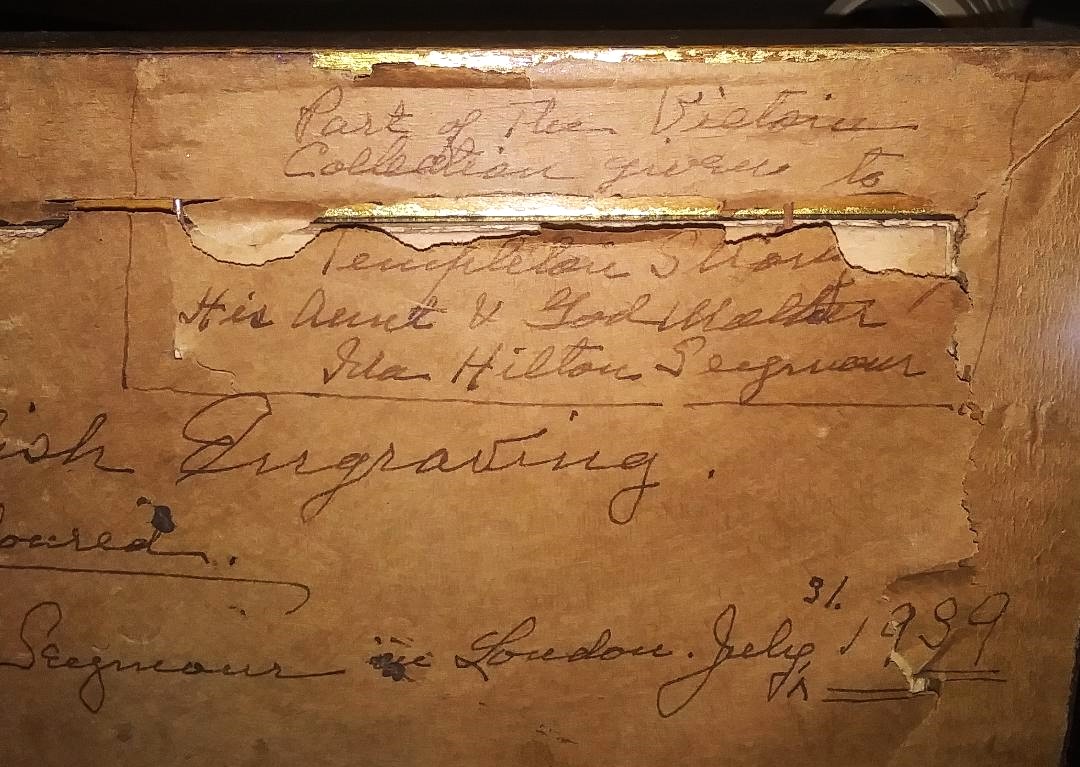 Part of The Victoria
Collection given to
Templeton Strong
His Aunt & God Mother
Ida Hilton Seegmour
ish Engraving.
oured.
Seegmour in London. July 31. 1939